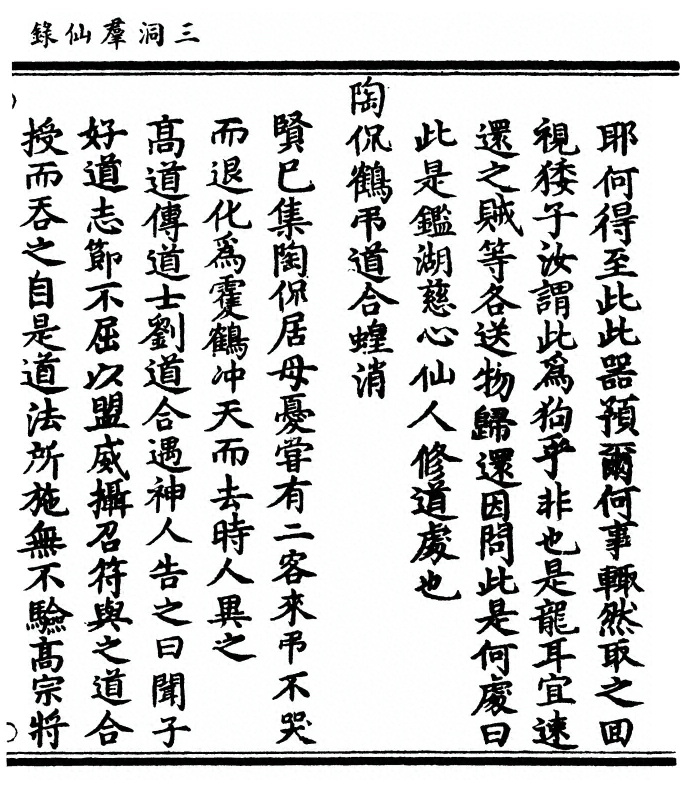 三洞羣仙錄
耶何得至此此器預爾何事輙然取之回
視矮子汝謂此為狗乎非也是龍耳宜速
還之賊等各送物歸還因問此是何處曰
此是鑑湖慈心仙人修道處也
陶侃鶴弔道合蝗消
賢巳集陶侃居母憂甞有二客來弔不哭
而退化為䨥鶴冲天而去時人異之
髙道傳道士劉道合遇神人告之曰聞子
好道志節不屈以盟威攝召符與之道合
授而吞之自是道法所施無不驗髙宗將